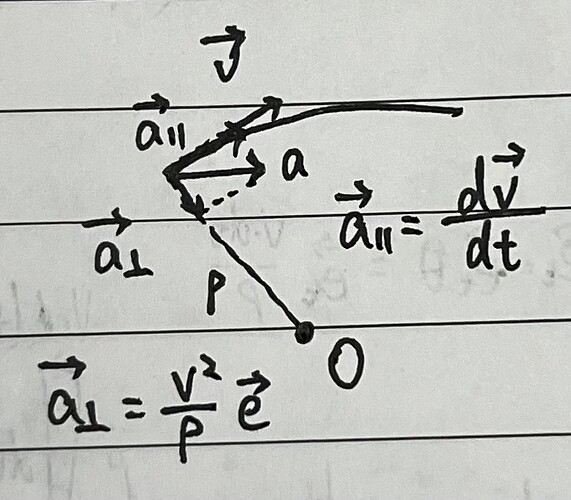 v⃗
a⃗∥
a
a⃗∥ = dv⃗/dt
a⃗⊥
ρ
O
a⃗⊥ = v²/ρ e⃗